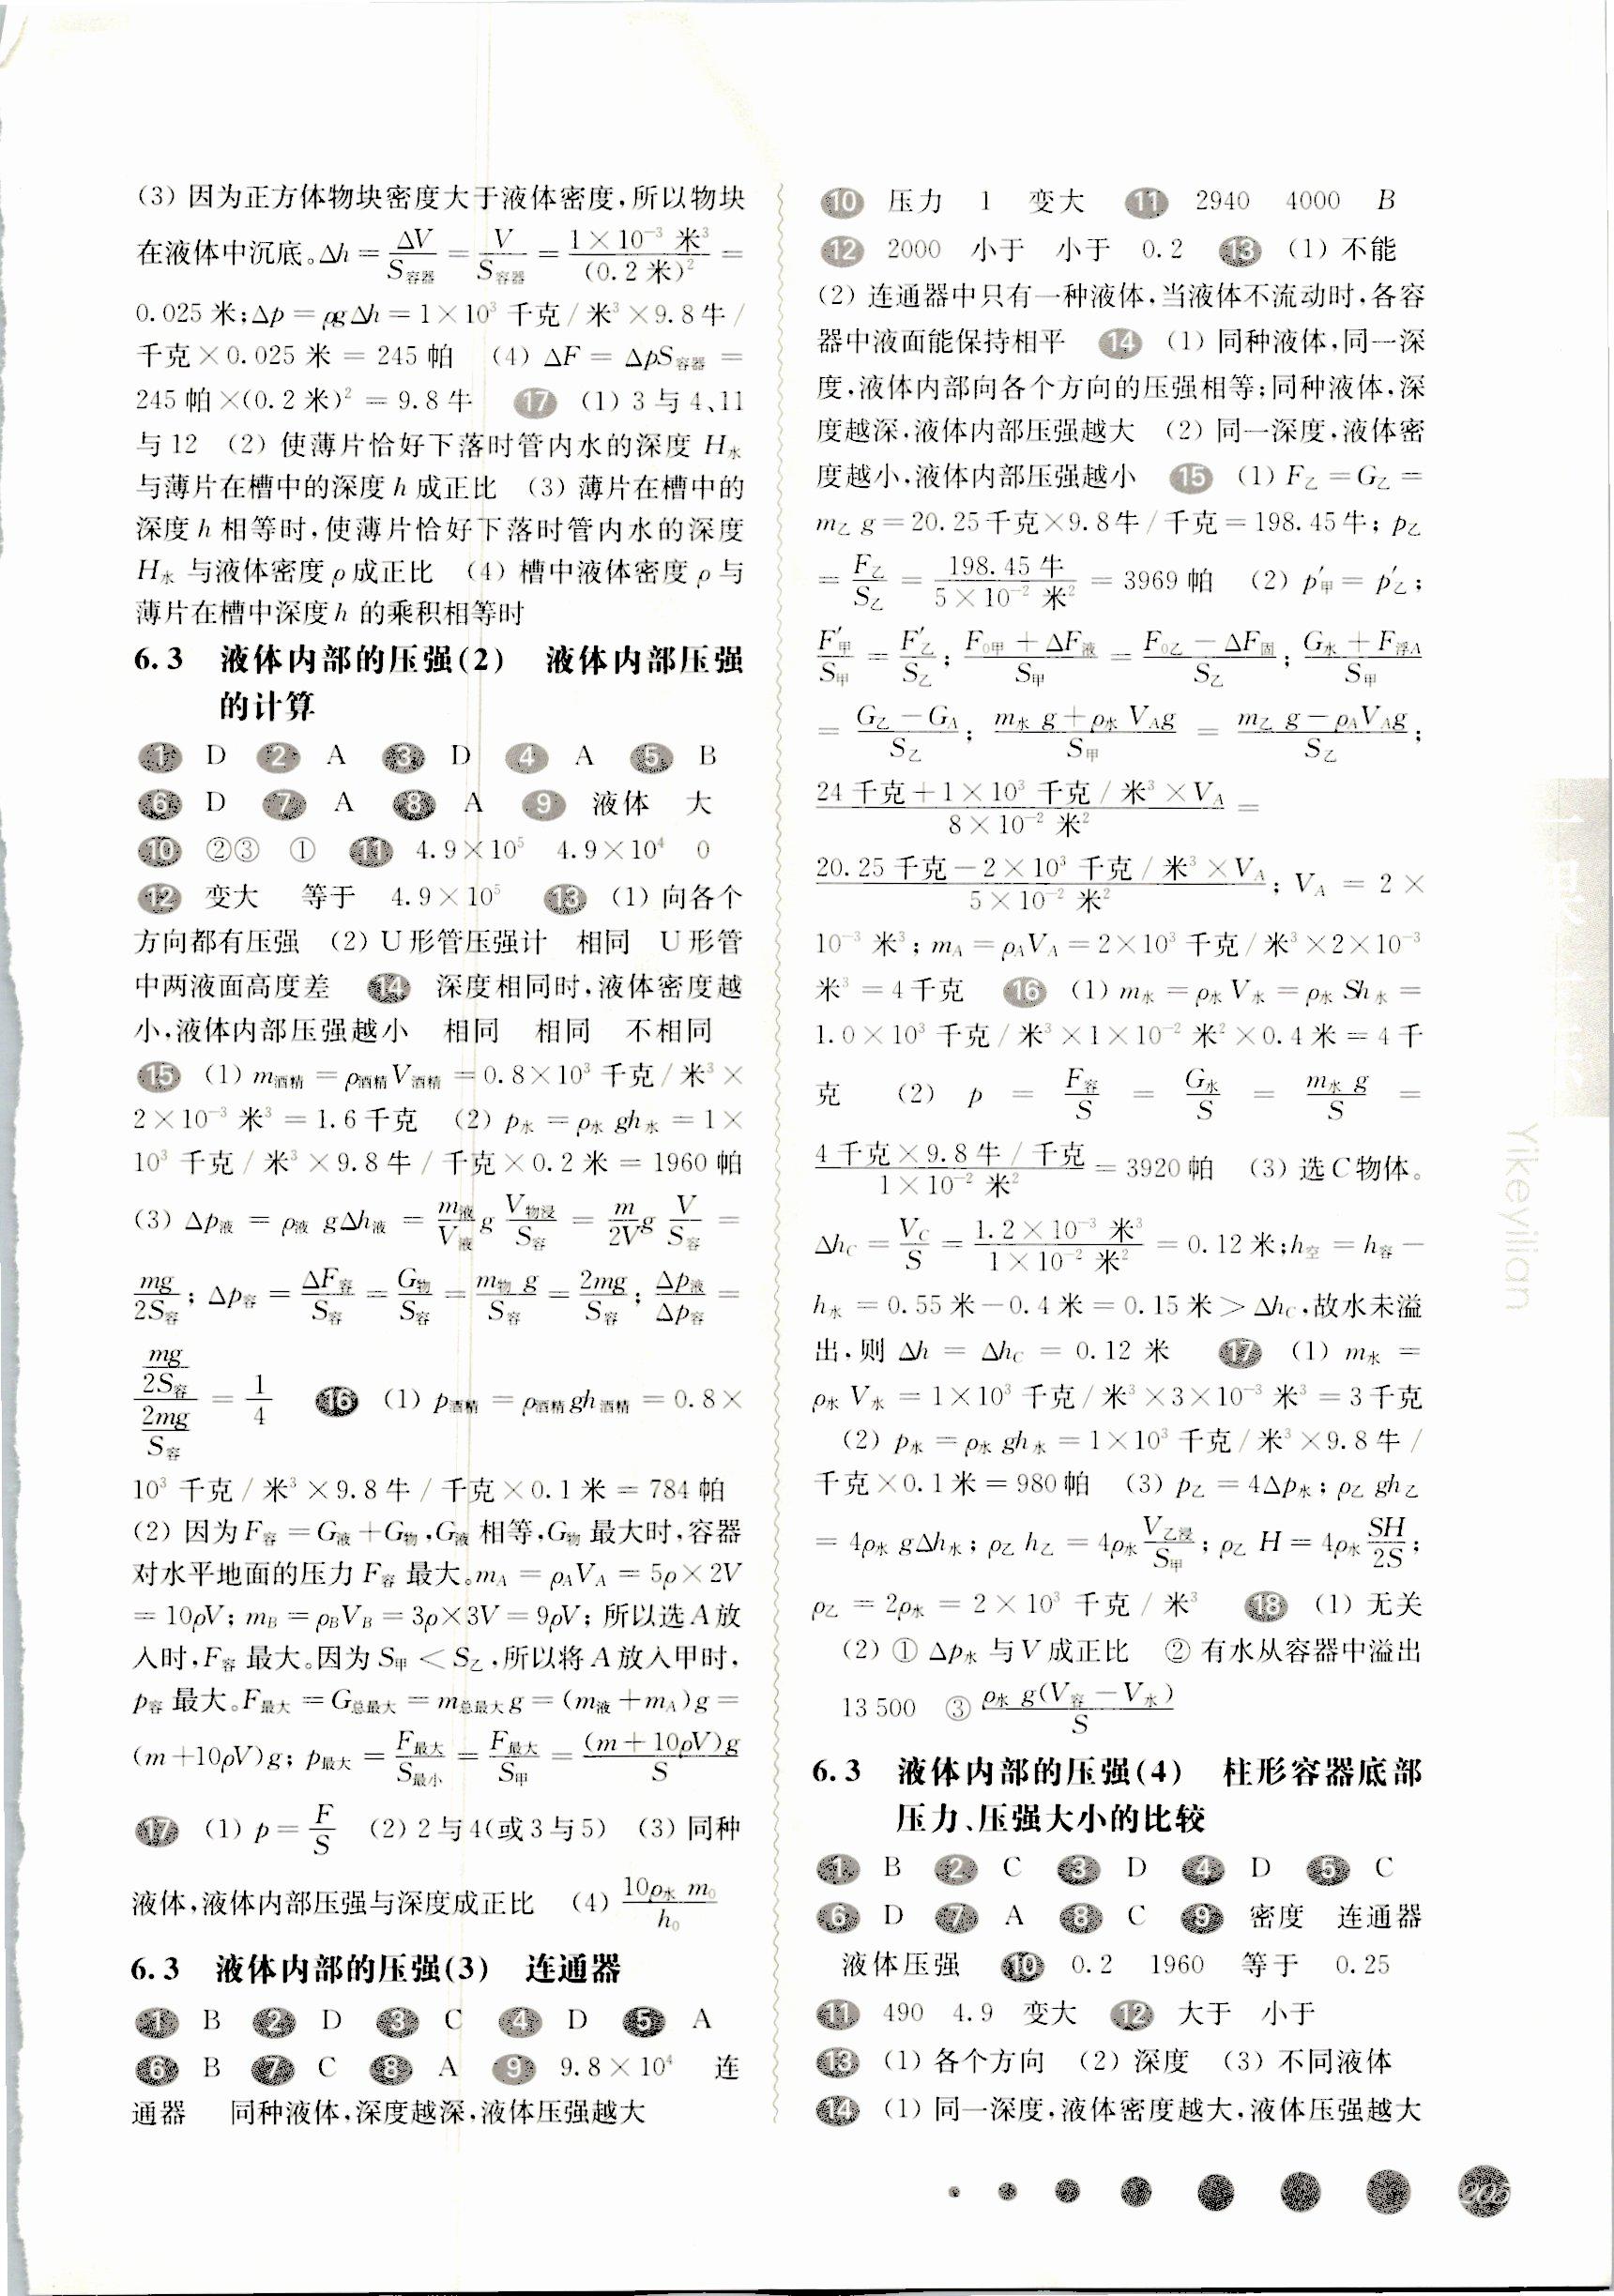 (3) 因为正方体物块密度大于液体密度,所以物块
在液体中沉底。Δh = ΔV/S容器 = V/S容器 = 1×10⁻³ 米³/(0.2米)² =
0.025 米;Δp = ρgΔh = 1×10³ 千克/米³×9.8牛/
千克×0.025 米 = 245 帕 (4) ΔF = ΔpS容器 =
245 帕×(0.2 米)² = 9.8牛 17 (1) 3 与 4、11
与 12 (2) 使薄片恰好下落时管内水的深度 H水
与薄片在槽中的深度 h 成正比 (3) 薄片在槽中的
深度 h 相等时,使薄片恰好下落时管内水的深度
H水 与液体密度 ρ 成正比 (4) 槽中液体密度 ρ 与
薄片在槽中深度 h 的乘积相等时
6.3 液体内部的压强(2) 液体内部压强
的计算
1 D 2 A 3 D 4 A 5 B
6 D 7 A 8 A 9 液体 大
10 ②③ ① 11 4.9×10⁵ 4.9×10⁴ 0
12 变大 等于 4.9×10⁵ 13 (1) 向各个
方向都有压强 (2) U形管压强计 相同 U形管
中两液面高度差 14 深度相同时,液体密度越
小,液体内部压强越小 相同 相同 不相同
15 (1) m酒精 = ρ酒精V酒精 = 0.8×10³ 千克/米³×
2×10⁻³ 米³ = 1.6千克 (2) p水 = ρ水 gh水 = 1×
10³ 千克/米³×9.8牛/千克×0.2米 = 1960帕
(3) Δp液 = ρ液 gΔh液 = m液/V液 g V物浸/S容 = m/2V g V/S容 =
mg/2S容; Δp容 = ΔF容/S容 = G物/S容 = m物 g/S容 = 2mg/S容; Δp液/Δp容 =
(mg/2S容)/(2mg/S容) = 1/4 16 (1) p酒精 = ρ酒精gh酒精 = 0.8×
10³ 千克/米³×9.8牛/千克×0.1米 = 784帕
(2) 因为F容 = G液+G物,G液 相等,G物 最大时,容器
对水平地面的压力F容 最大。mA = ρAVA = 5ρ×2V
= 10ρV; mB = ρBVB = 3ρ×3V = 9ρV; 所以选A放
入时,F容 最大。因为S甲 < S乙,所以将A放入甲时,
p容 最大。F最大 = G总最大 = m总最大g = (m液+mA)g =
(m+10ρV)g; p最大 = F最大/S最小 = F最大/S甲 = (m+10ρV)g/S
17 (1) p = F/S (2) 2与4(或3与5) (3) 同种
液体,液体内部压强与深度成正比 (4) 10ρ水 m₀/h₀
6.3 液体内部的压强(3) 连通器
1 B 2 D 3 C 4 D 5 A
6 B 7 C 8 A 9 9.8×10⁴ 连
通器 同种液体,深度越深,液体压强越大
10 压力 1 变大 11 2940 4000 B
12 2000 小于 小于 0.2 13 (1) 不能
(2) 连通器中只有一种液体,当液体不流动时,各容
器中液面能保持相平 14 (1) 同种液体,同一深
度,液体内部向各个方向的压强相等;同种液体,深
度越深,液体内部压强越大 (2) 同一深度,液体密
度越小,液体内部压强越小 15 (1) F乙 = G乙 =
m乙 g = 20.25千克×9.8牛/千克 = 198.45牛; p乙
= F乙/S乙 = 198.45牛/5×10⁻² 米² = 3969帕 (2) p′甲 = p′乙;
F′甲/S甲 = F′乙/S乙; F0甲+ΔF液/S甲 = F0乙−ΔF固/S乙; G水+F浮A/S甲
= G乙−GA/S乙; m水 g+ρ水 VAg/S甲 = m乙 g−ρAVAg/S乙;
24千克+1×10³ 千克/米³×VA/8×10⁻² 米² =
20.25千克−2×10³ 千克/米³×VA/5×10⁻² 米²; VA = 2×
10⁻³ 米³; mA = ρAVA = 2×10³ 千克/米³×2×10⁻³
米³ = 4千克 16 (1) m水 = ρ水 V水 = ρ水 Sh水 =
1.0×10³ 千克/米³×1×10⁻² 米²×0.4米 = 4千
克 (2) p = F容/S = G水/S = m水 g/S =
4千克×9.8牛/千克/1×10⁻² 米² = 3920帕 (3) 选C物体。
ΔhC = VC/S = 1.2×10⁻³ 米³/1×10⁻² 米² = 0.12米;h空 = h容−
h水 = 0.55米−0.4米 = 0.15米 > ΔhC,故水未溢
出,则 Δh = ΔhC = 0.12 米 17 (1) m水 =
ρ水 V水 = 1×10³ 千克/米³×3×10⁻³ 米³ = 3千克
(2) p水 = ρ水 gh水 = 1×10³ 千克/米³×9.8牛/
千克×0.1米 = 980帕 (3) p乙 = 4Δp水; ρ乙 gh乙
= 4ρ水 gΔh水; ρ乙 h乙 = 4ρ水 V乙浸/S甲; ρ乙 H = 4ρ水 SH/2S;
ρ乙 = 2ρ水 = 2×10³ 千克/米³ 18 (1) 无关
(2) ① Δp水 与V成正比 ② 有水从容器中溢出
13 500 ③ ρ水 g(V容−V水)/S
6.3 液体内部的压强(4) 柱形容器底部
压力、压强大小的比较
1 B 2 C 3 D 4 D 5 C
6 D 7 A 8 C 9 密度 连通器
液体压强 10 0.2 1960 等于 0.25
11 490 4.9 变大 12 大于 小于
13 (1) 各个方向 (2) 深度 (3) 不同液体
14 (1) 同一深度,液体密度越大,液体压强越大
Yikeyilian
205